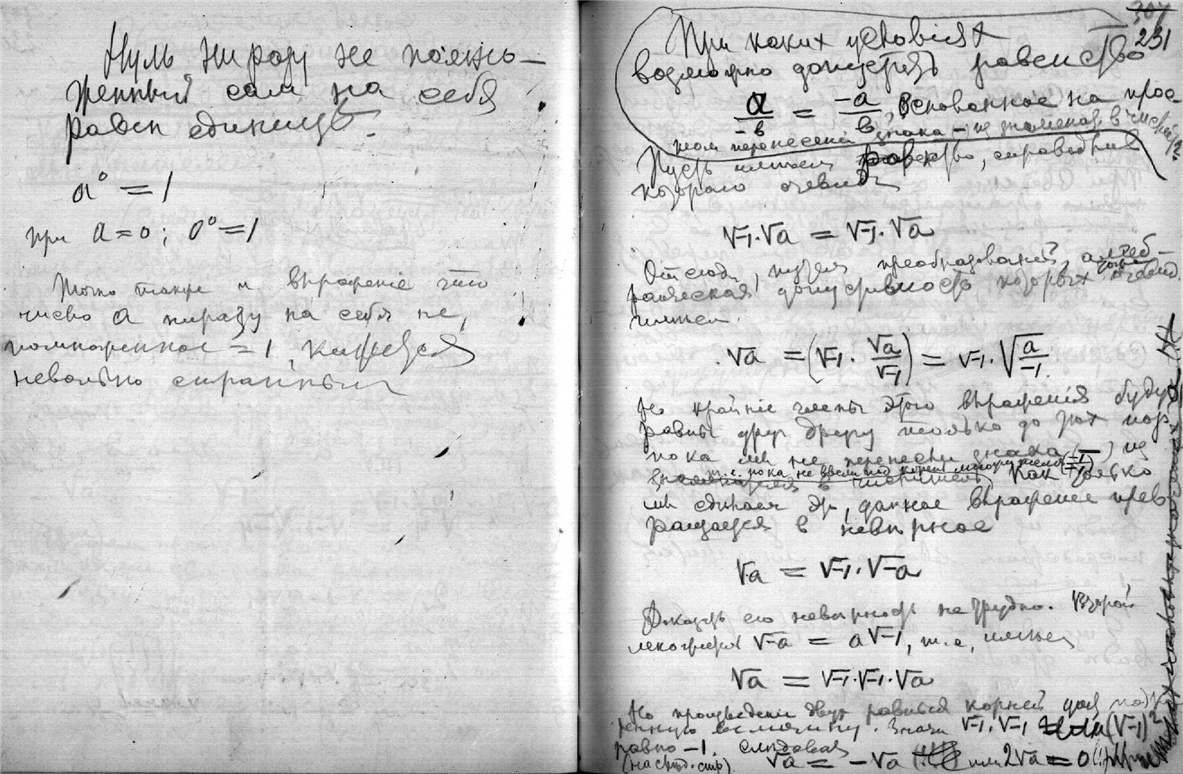 Нуль ни разу не помно-
женный сам на себя
равен единицѣ.
a⁰ = 1
при a = 0; 0⁰ = 1
Точно также и выраженіе что
число a ни разу на себя не
помноженное = 1, кажется
невольно страннымъ
307
231
При каких условіях
возможно допустить равенство
a/-b = -a/b, основанное на прос-
том перенесеніи знака - из знаменат. в числит.?
Пусть имѣем равенство, справедлив.
котораго очевид.
√-1·√a = √-1·√a
Отсюда, путем преобразованій, алгеб-
раическая допустимость которых очевид.
имѣем.
√a = (√-1 · √a/√-1) = √-1 · √(a/-1).
Но крайніе члены этого выраженія будут
равны друг другу только до тѣх пор,
пока мы не перенесли знака -, из
знаменателя в числитель. Как только
т.е. пока не ввели под корень
мы сдѣлаем это, данное выраженіе прев-
ращается в невѣрное
√a = √-1·√-a
Доказать его невѣрность не трудно. Второй
√-a = a√-1, т.е. имѣем
√a = √-1·√-1·√a
Но произведеніе двух равных корней дает подко-
ренную величину. Значит √-1·√-1 или (√-1)²
равно -1. Слѣдоват.
(на слѣд. стр.) √a = -√a или 2√a = 0